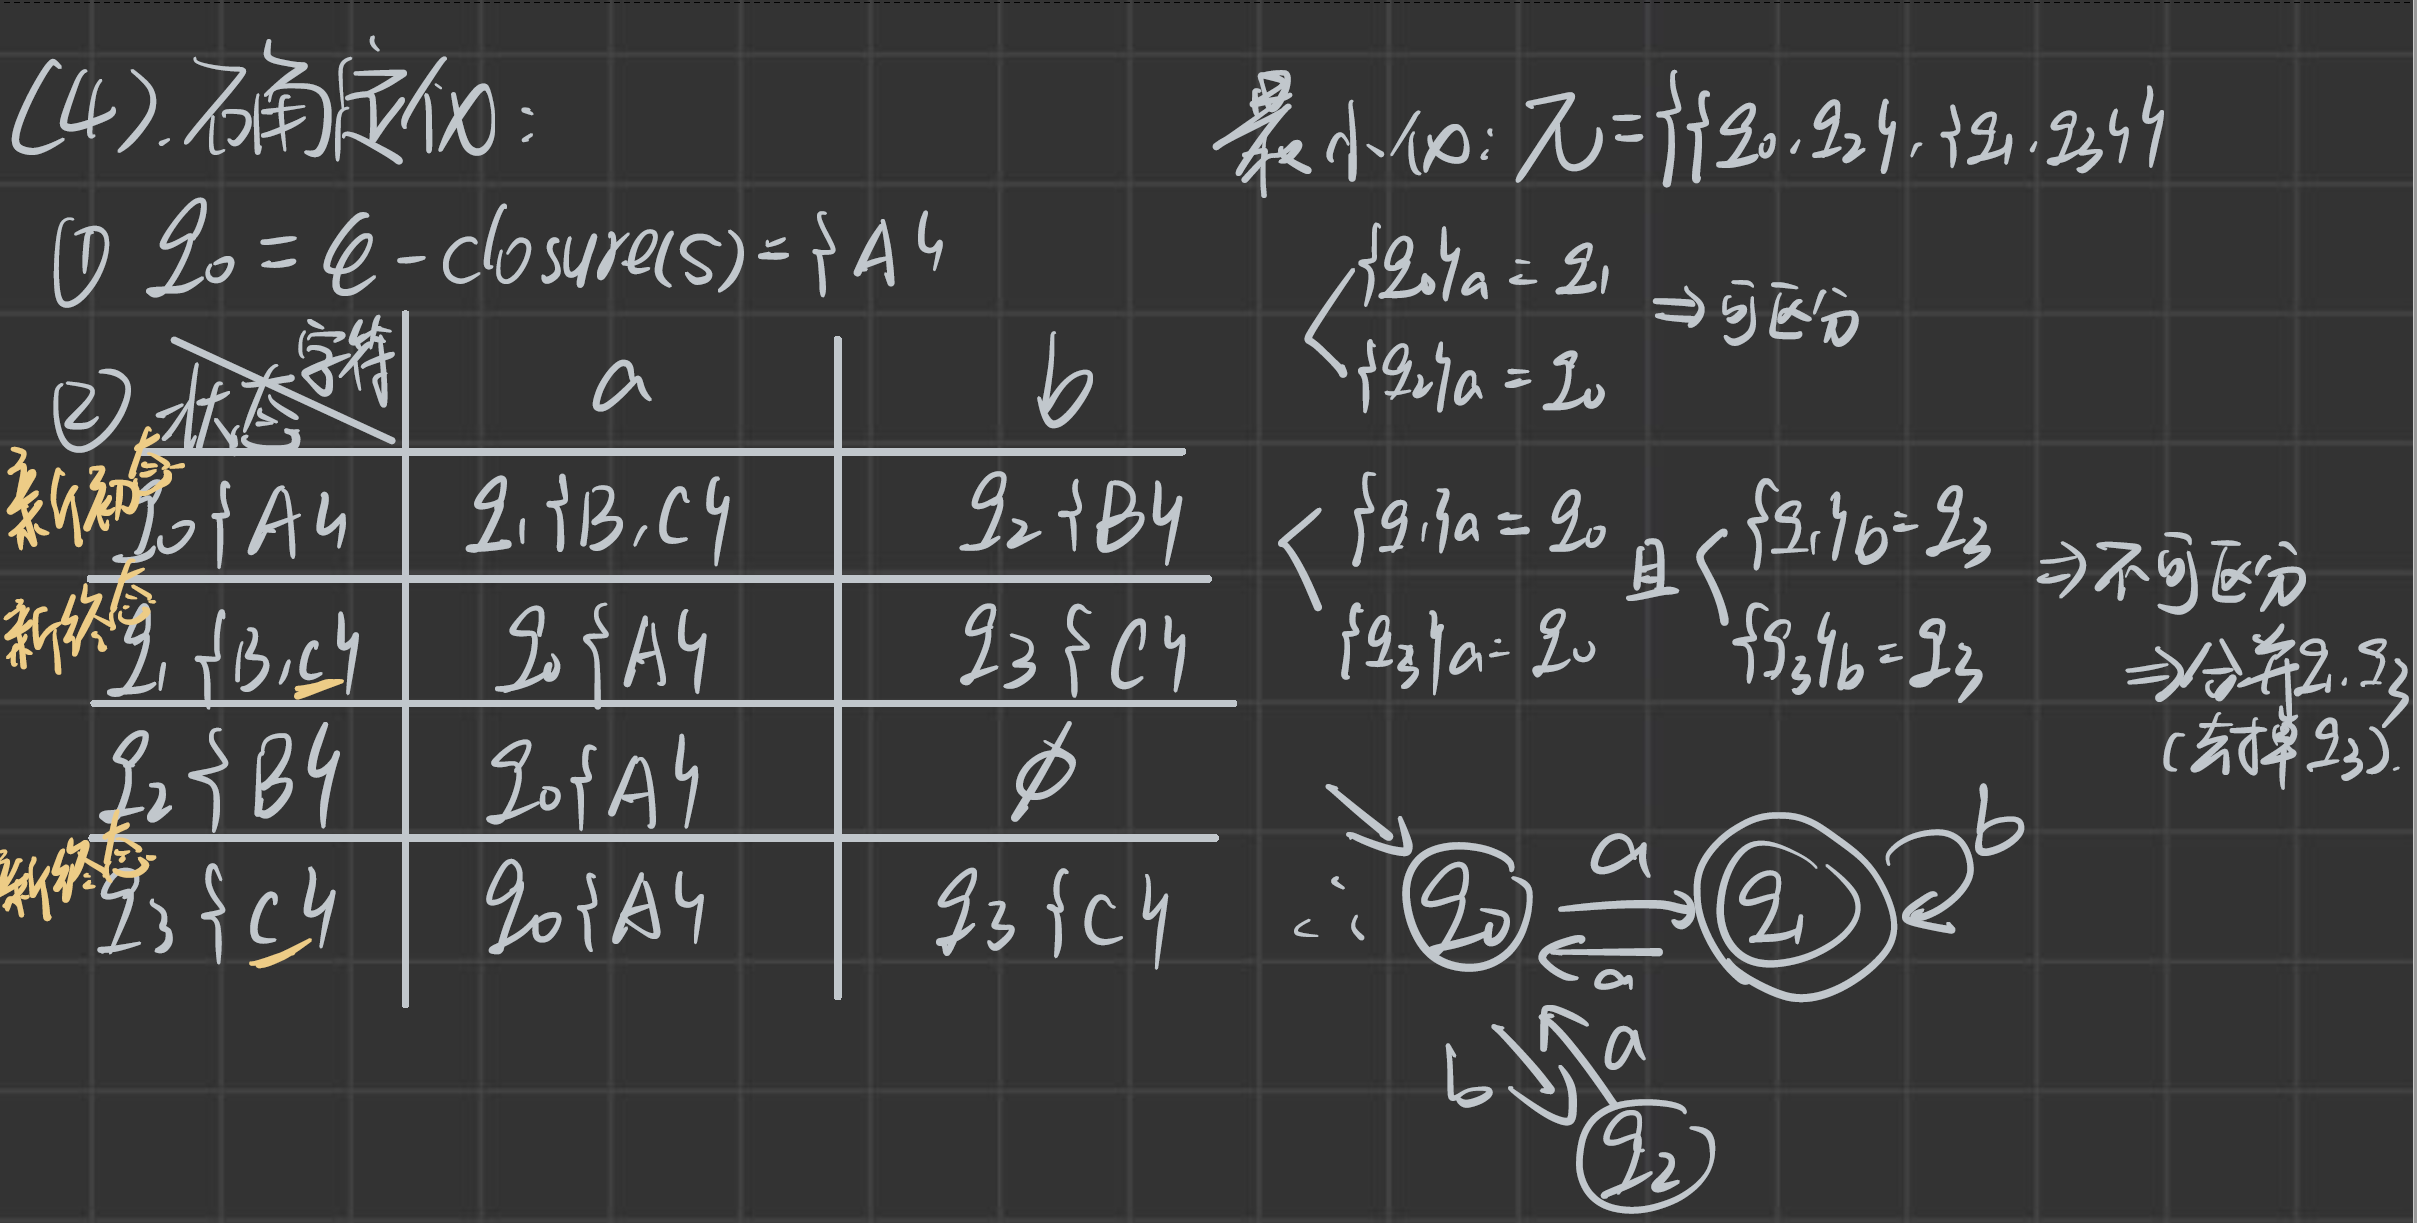 (4).确定化:
① q₀ = ε-closure(S) = {A}
② 状态 字符 a b
新初态 q₀{A} q₁{B,C} q₂{B}
新终态 q₁{B,C} q₀{A} q₃{C}
q₂{B} q₀{A} ϕ
新终态 q₃{C} q₀{A} q₃{C}
最小化: π={{q₀.q₂}.{q₁.q₃}}
{q₀}a = q₁
⇒可区分
{q₂}a = q₀
{q₁}a = q₀ 且 {q₁}b = q₃ ⇒不可区分
{q₃}a = q₀ {q₃}b = q₃ ⇒合并q₁.q₃
(去掉q₃).
∴ q₀ a q₁ b
a
b a
q₂